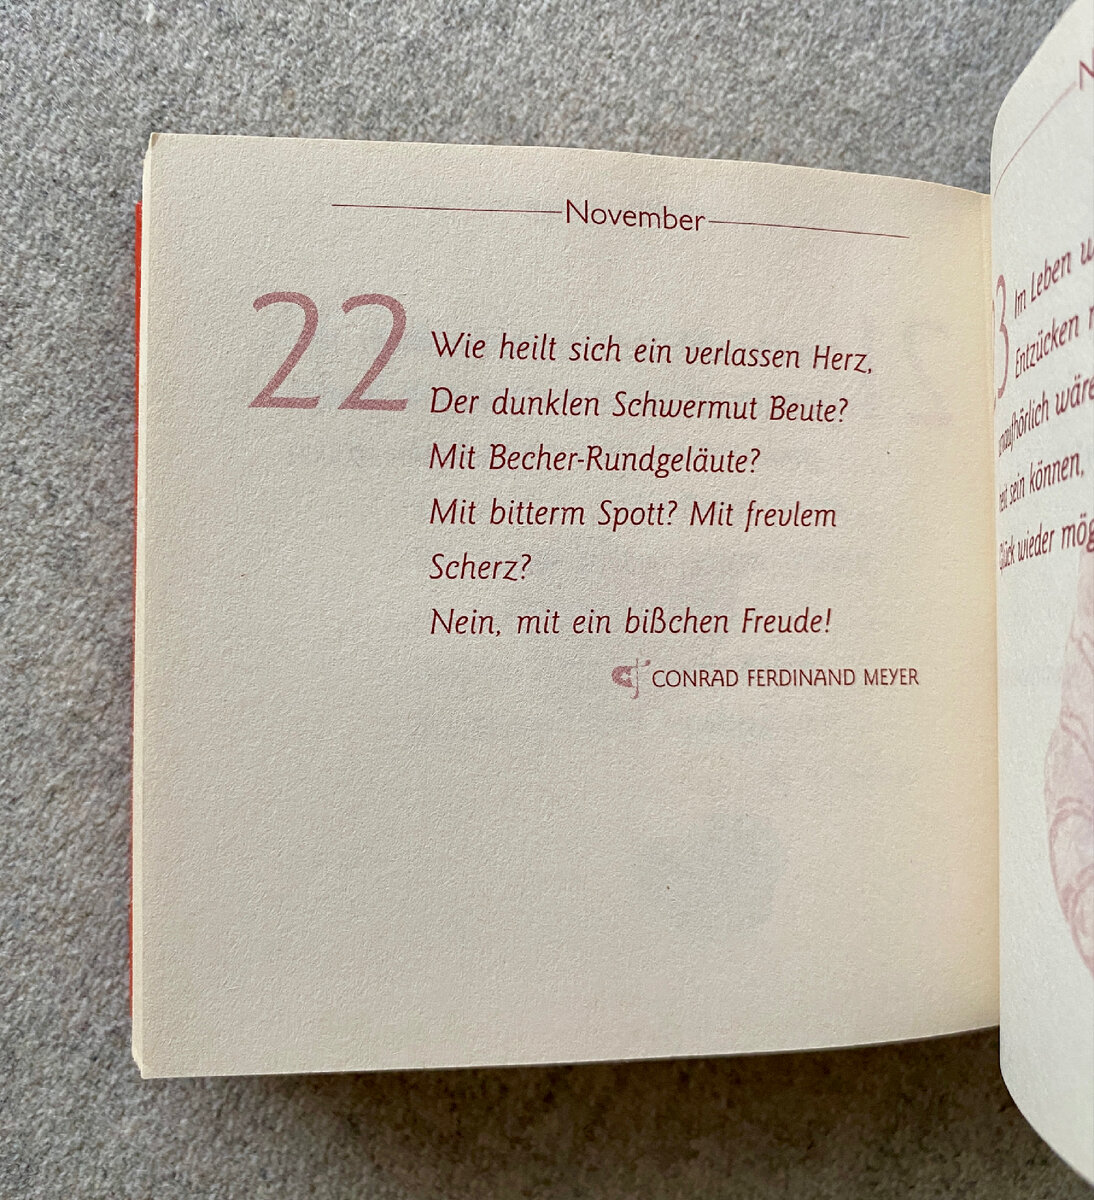 November
22
Wie heilt sich ein verlassen Herz,
Der dunklen Schwermut Beute?
Mit Becher-Rundgeläute?
Mit bitterm Spott? Mit frevlem
Scherz?
Nein, mit ein bißchen Freude!
CONRAD FERDINAND MEYER
Im Leben
Entzücken
wäre
sein können,
Glück wieder